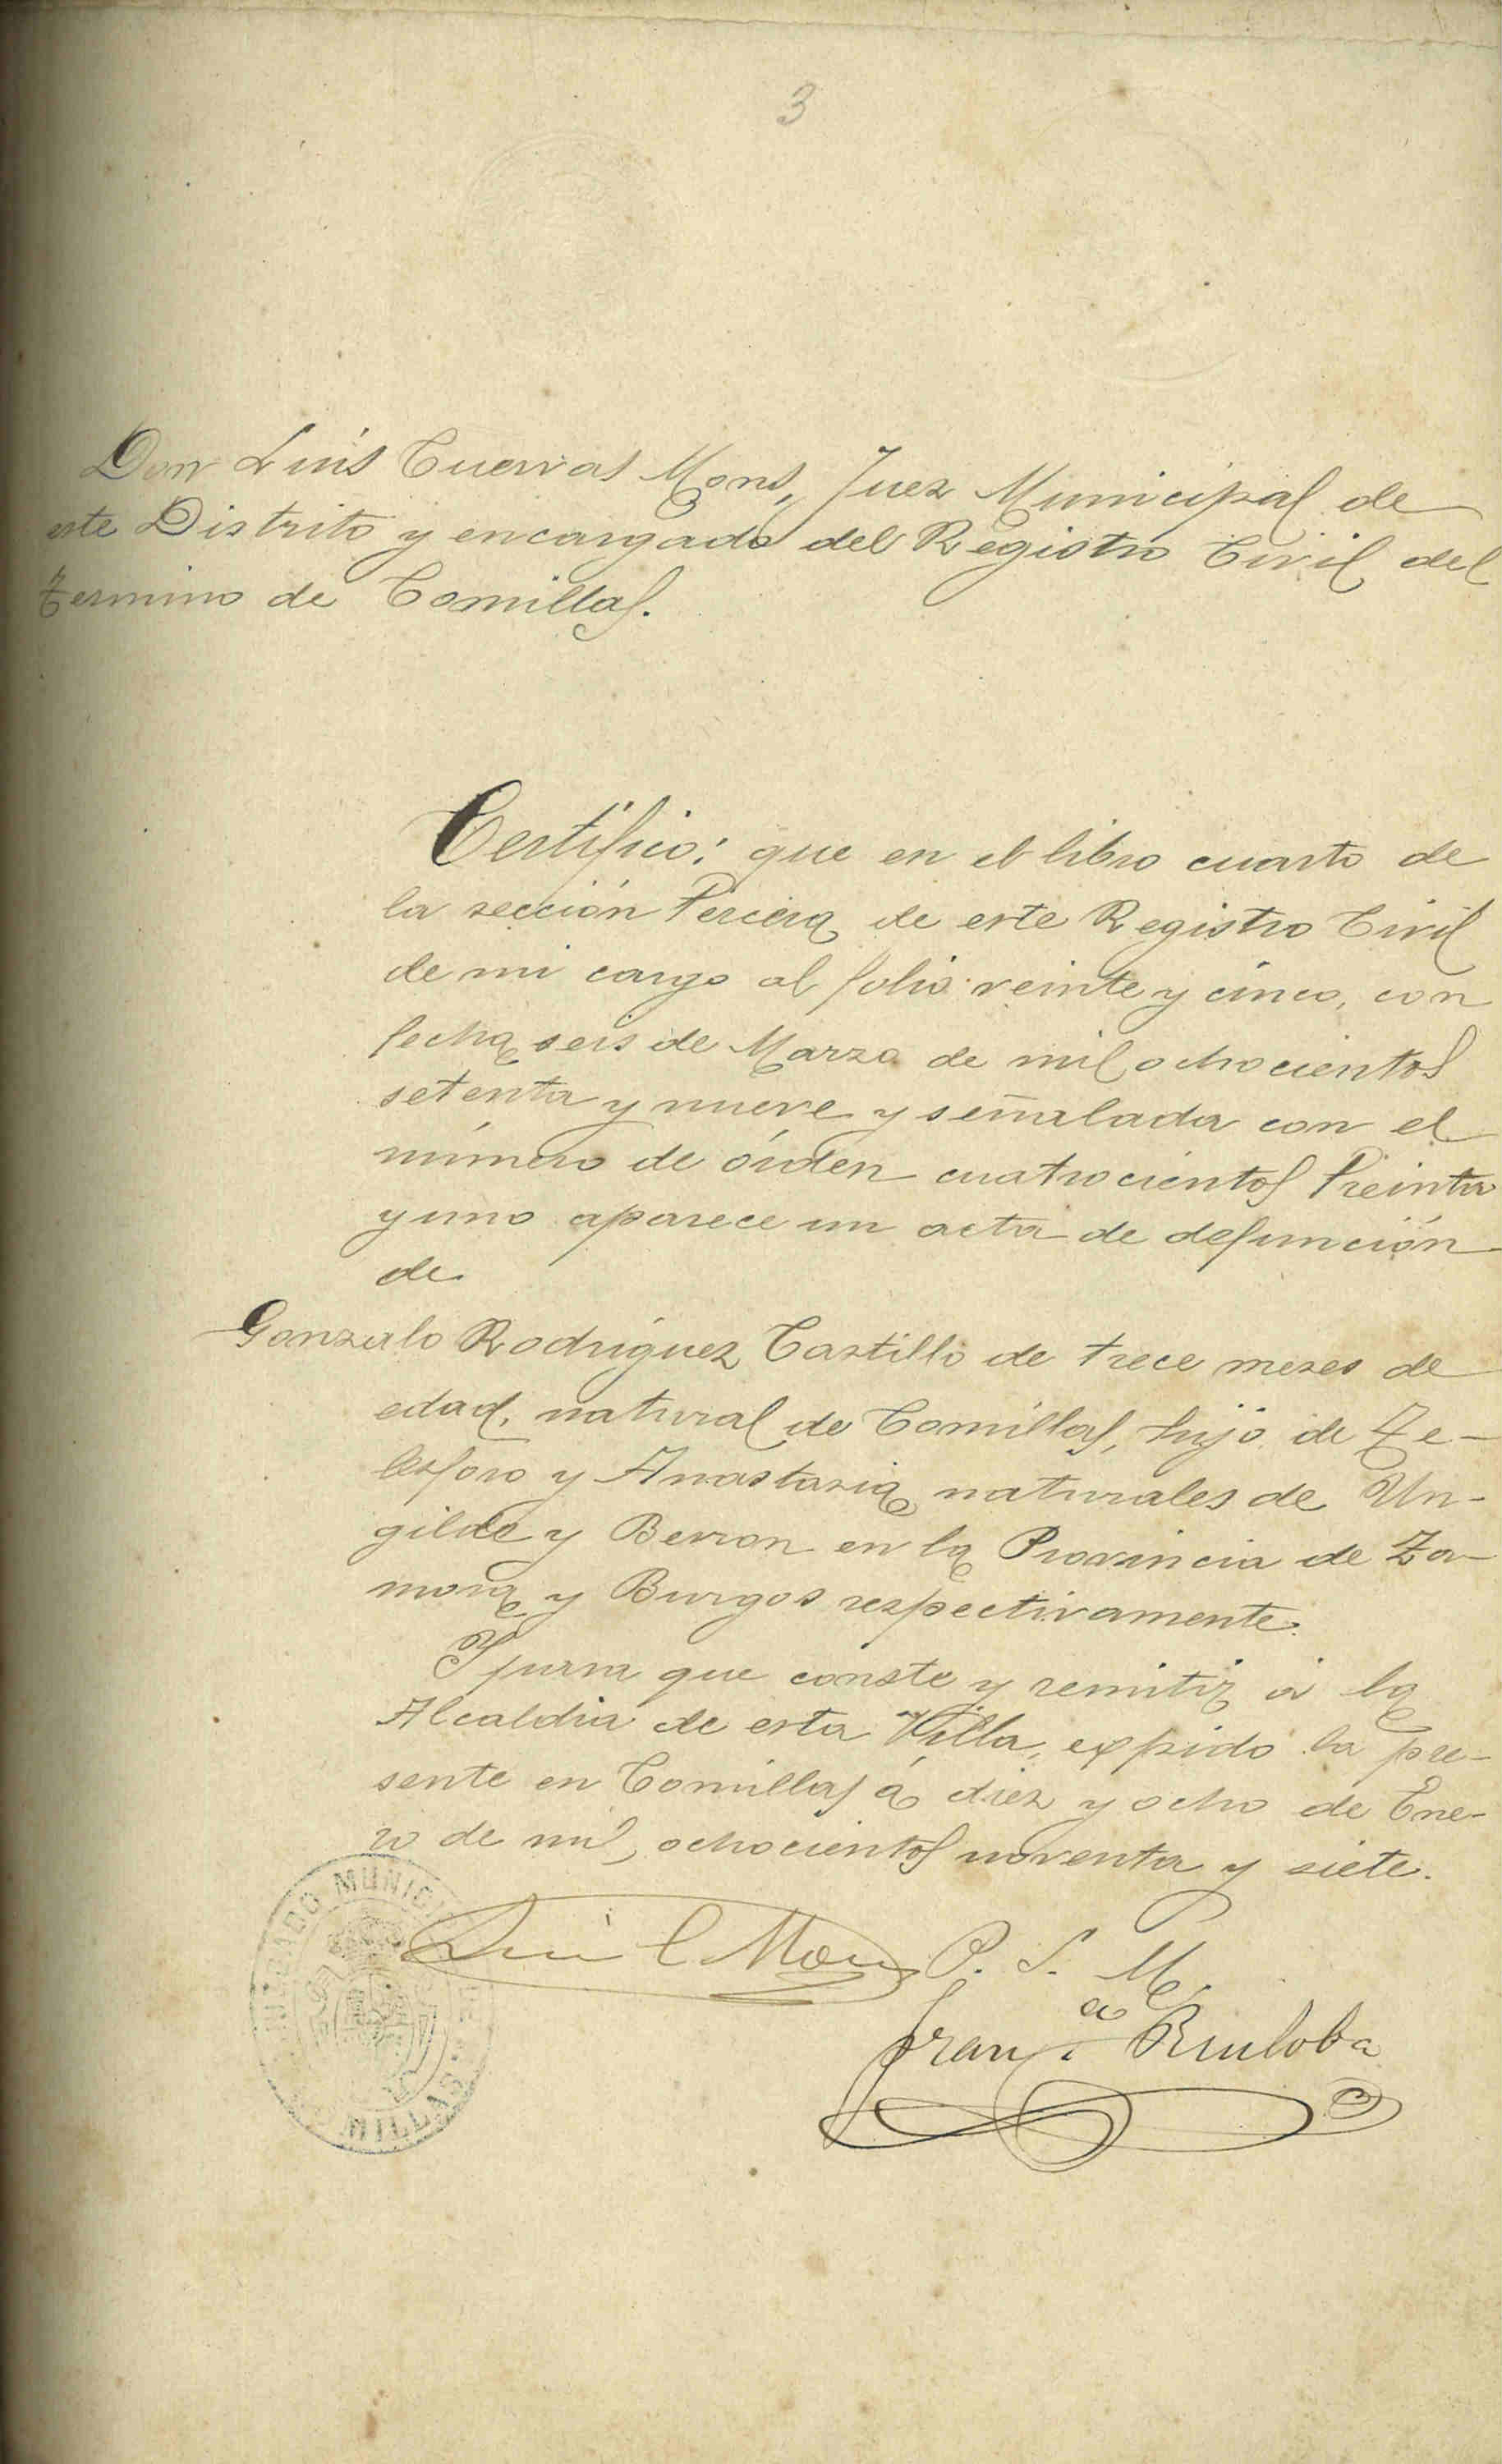 3
Don Luis Cuevas Mons, Juez Municipal de
este Distrito y encargado del Registro Civil del
termino de Comillas.
Certifico: que en el libro cuarto de
la sección tercera de este Registro Civil
de mi cargo al folio veinte y cinco, con
fecha seis de Marzo de mil ochocientos
setenta y nueve y señalada con el
número de órden cuatrocientos treinta
y uno aparece un acta de defunción
de
Gonzalo Rodriguez Castillo de trece meses de
edad, natural de Comillas, hijo de Te-
lesforo y Anastasia naturales de Un-
gilde y Berron en la Provincia de Za-
mora y Burgos respectivamente.
Y para que conste y remitir á la
Alcaldia de esta Villa, expido la pre-
sente en Comillas á diez y ocho de Ene-
ro de mil ochocientos noventa y siete.
Luis C Mons P. S. M.
Franco Ruiloba
JUZGADO MUNICI
MILLAS